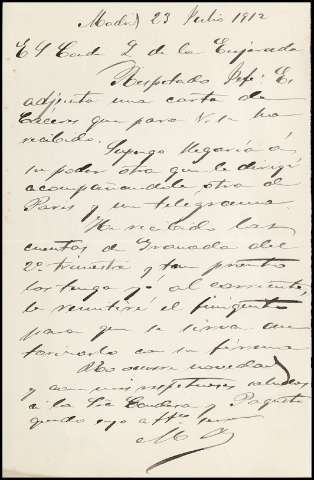 Madrid 23 Julio 1912
E S Conde D de la Enjarada
Respetado Jefe: E.
adjunta una carta de
Cáceres que para V. se ha
recibido.
Supongo llegaría á
su poder otra que le dirigí
acompañandole otra de
Paris y un telegrama.
He recibido las
cuentas de Granada del
2º trimestre y tan pronto
las tenga yó al corriente,
le remitiré el finiquito
para que se sirva au
torizarlo con su firma
No ocurre novedad
y con mis respetuosos saludos
á la Sra Condesa y Paquita
quedo suyo affmo